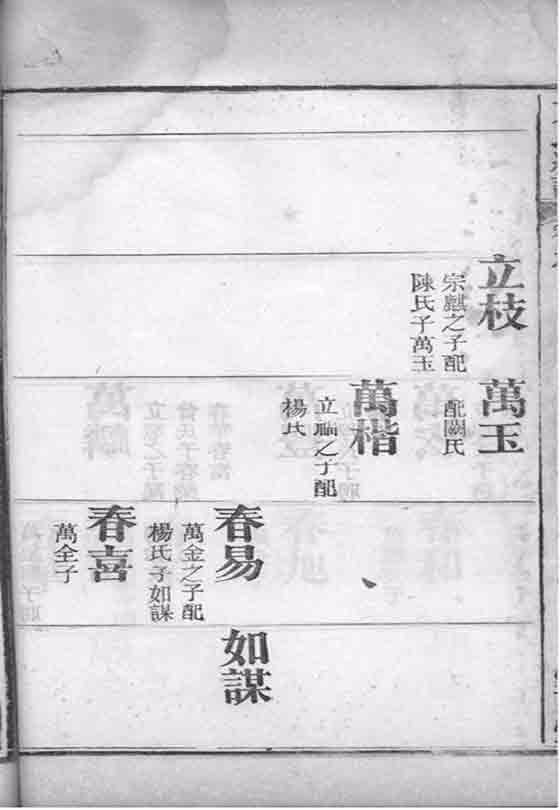 立枝
宗麒之子配
陳氏子萬玉
萬玉
配關氏
萬楷
立瑞之子配
楊氏
春易
萬金之子配
楊氏子如謀
春喜
萬全子
如謀